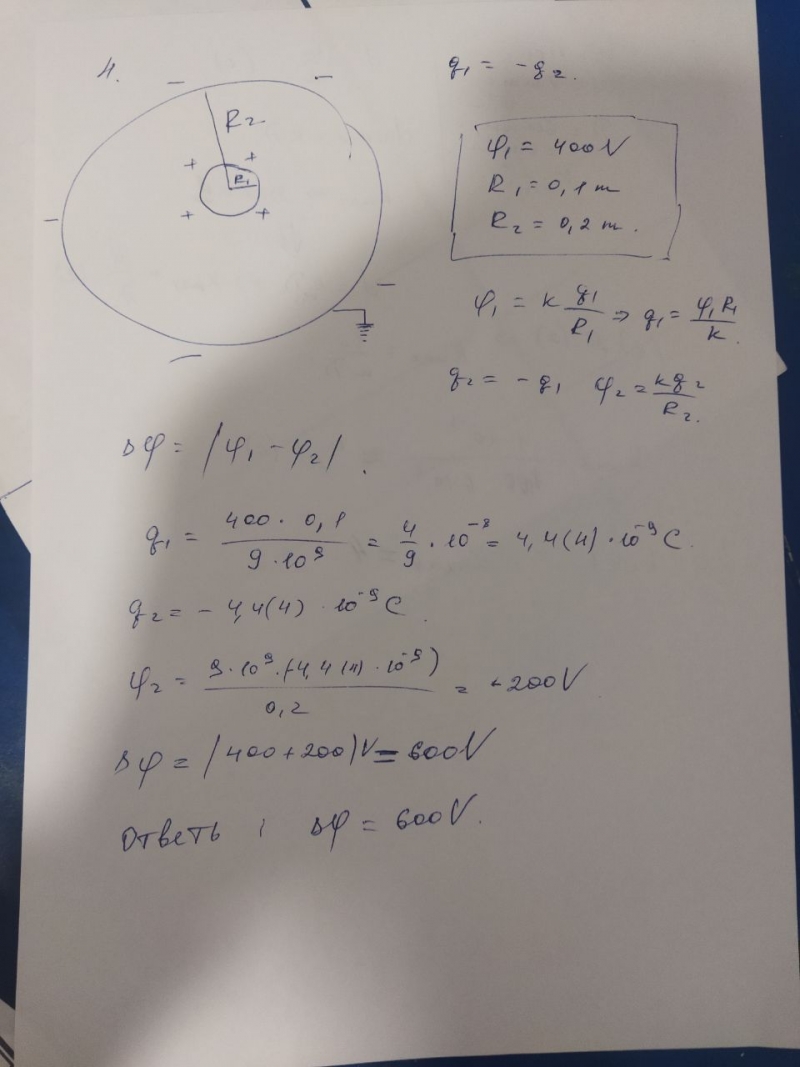 4.
R₂
R₁
q₁ = -q₂.
φ₁ = 400V
R₁ = 0,1 m
R₂ = 0,2 m.
φ₁ = k q₁/R₁ => q₁ = φ₁R₁/k.
q₂ = -q₁ φ₂ = kq₂/R₂.
Δφ = |φ₁ - φ₂|.
q₁ = 400 · 0,1 / 9·10⁹ = 4/9 · 10⁻⁸ = 4,4(4) · 10⁻⁹ C.
q₂ = - 4,4(4) · 10⁻⁹ C.
φ₂ = 9·10⁹·(-4,4(4)·10⁻⁹) / 0,2 = -200V
Δφ = |400 + 200|V = 600V
Ответь : Δφ = 600V.